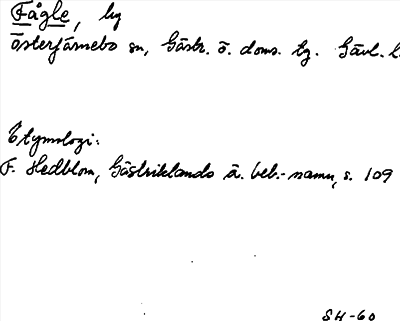 Fågle, by
Österfärnebo sn, Gästr. ö. doms. tg. Gävl. l.
Etymologi:
F. Hedblom, Gästriklands ä. beb.-namn, s. 109
SH-60